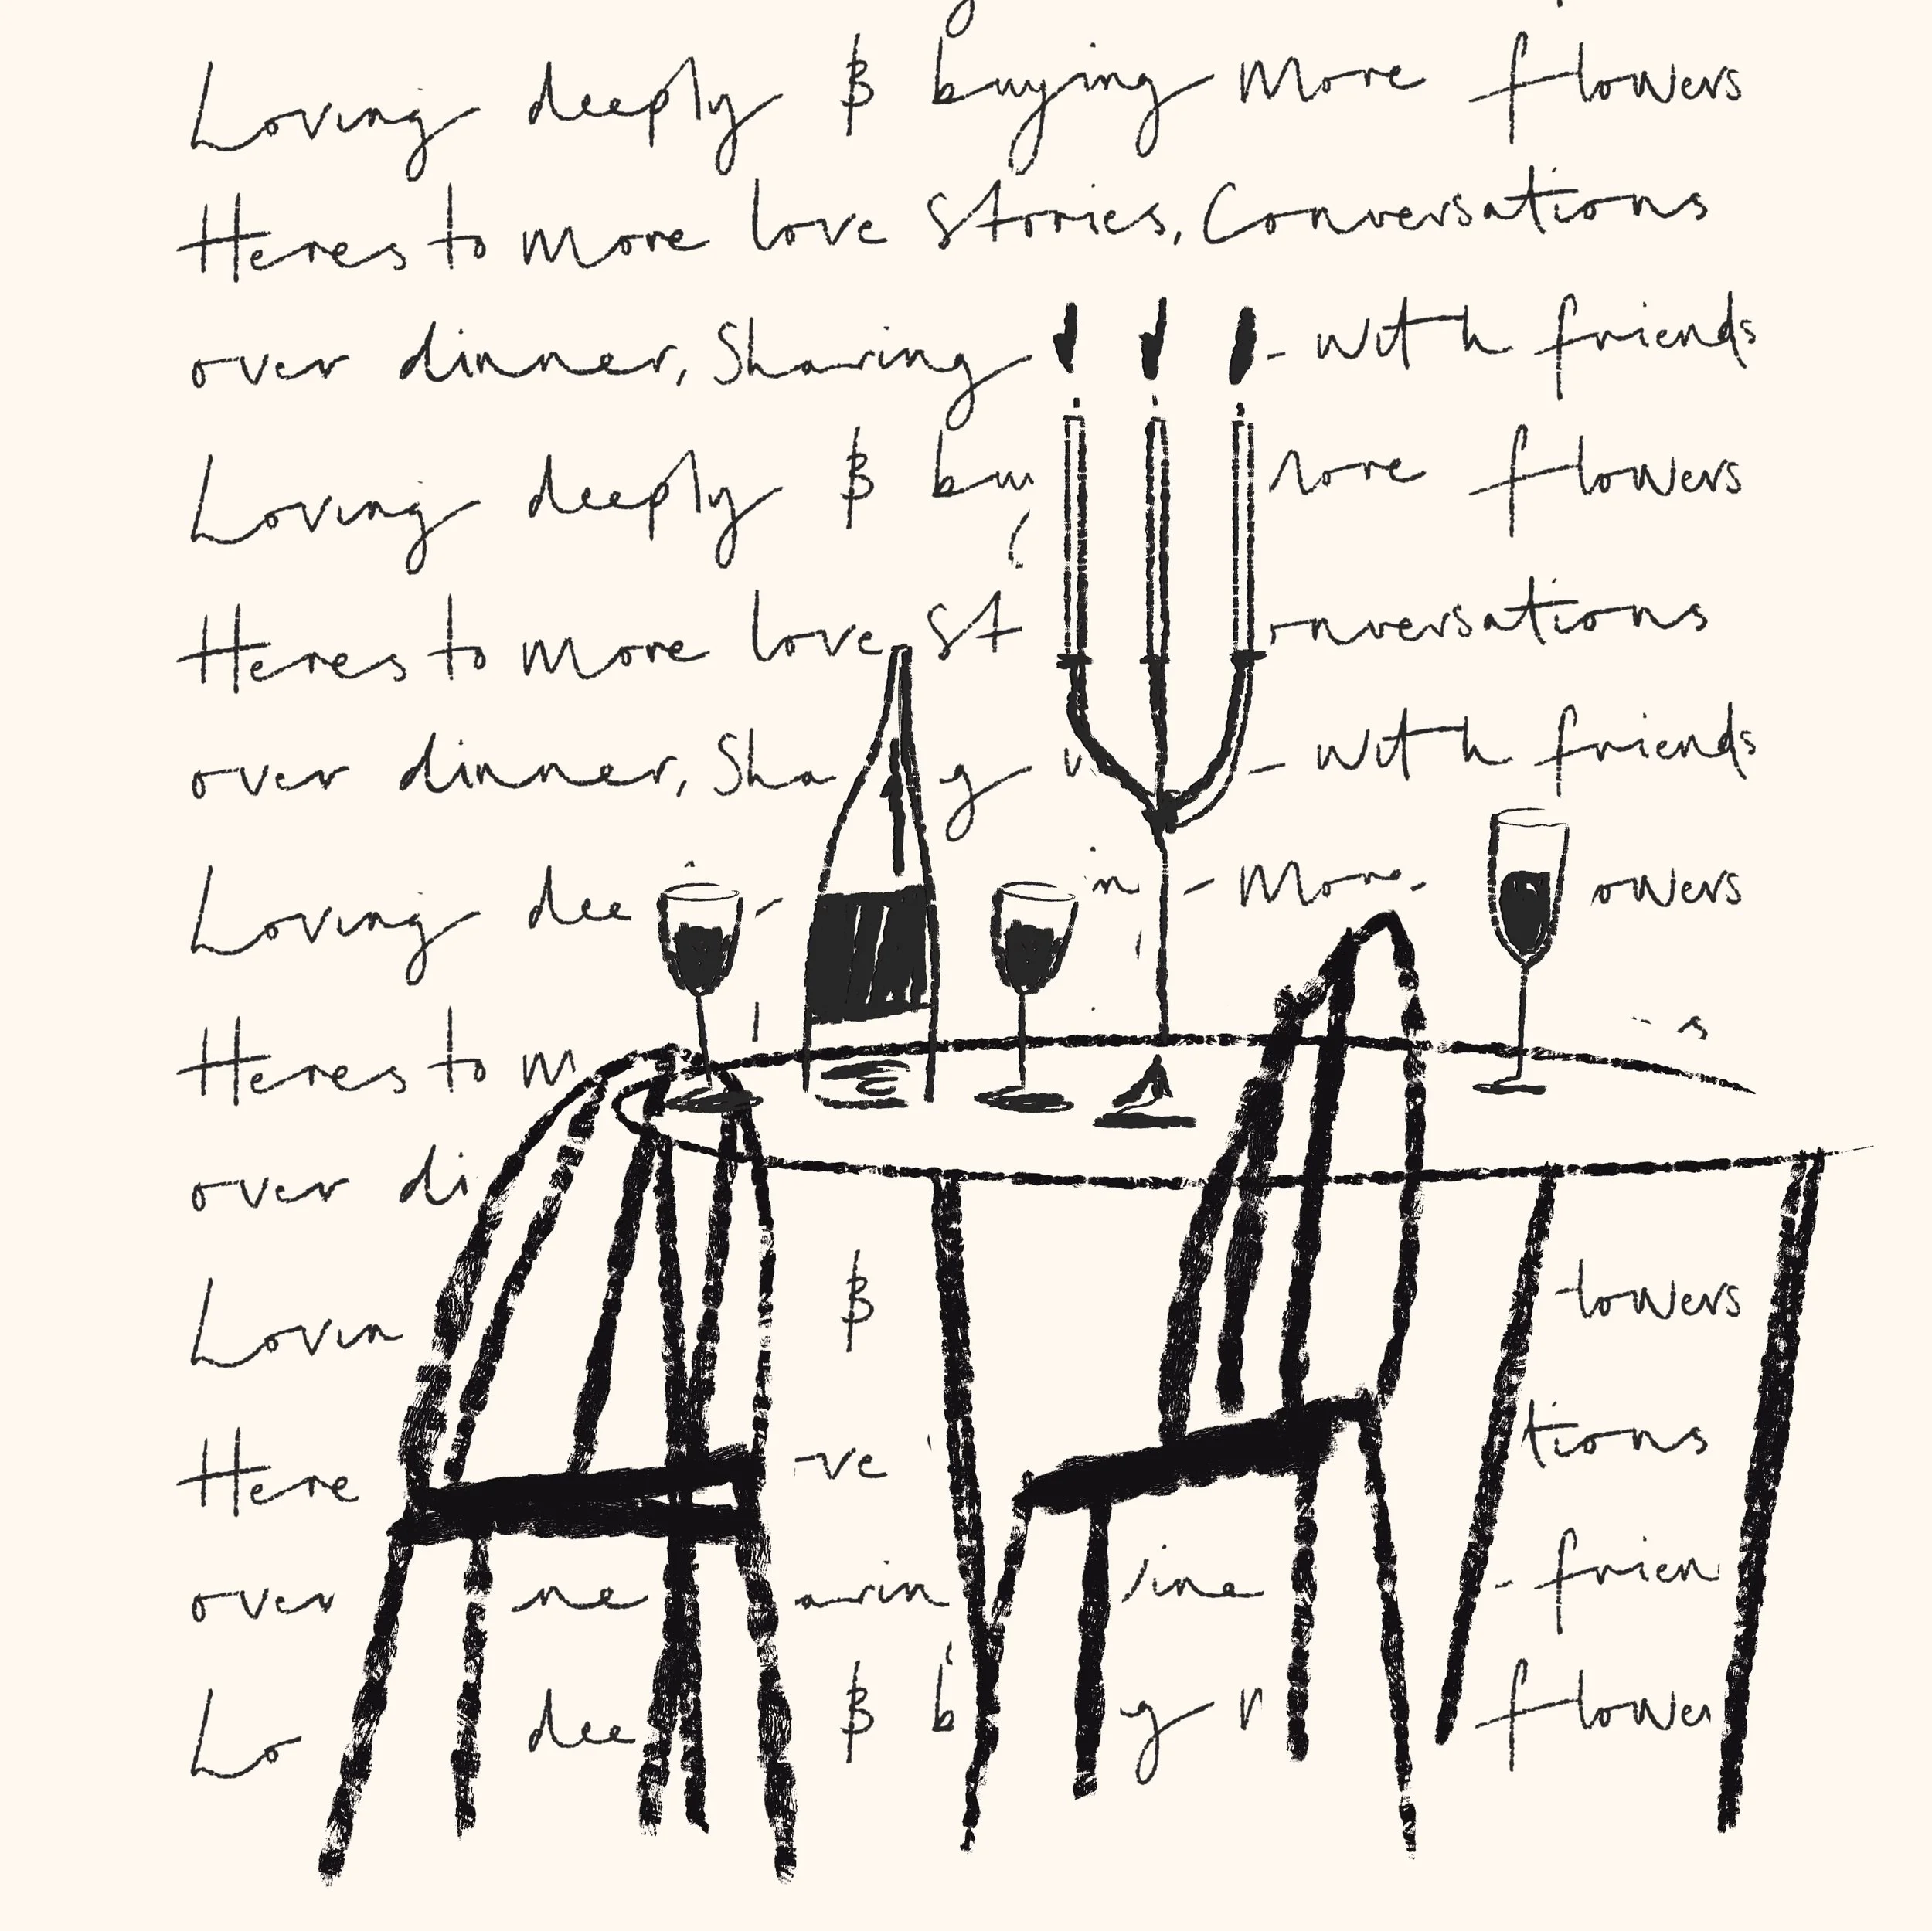 Loving deeply & buying More flowers
Heres to More love Stories, Conversations
over dinner, Sharing - with friends
Loving deeply & More flowers
Heres to More love St onversations
over dinner, Sha g - with friends
Loving dee - More owers
Heres to M s
over di
Lovin & lowers
Here ve tions
over ne arin ine - frien
Lo dee & b g flower